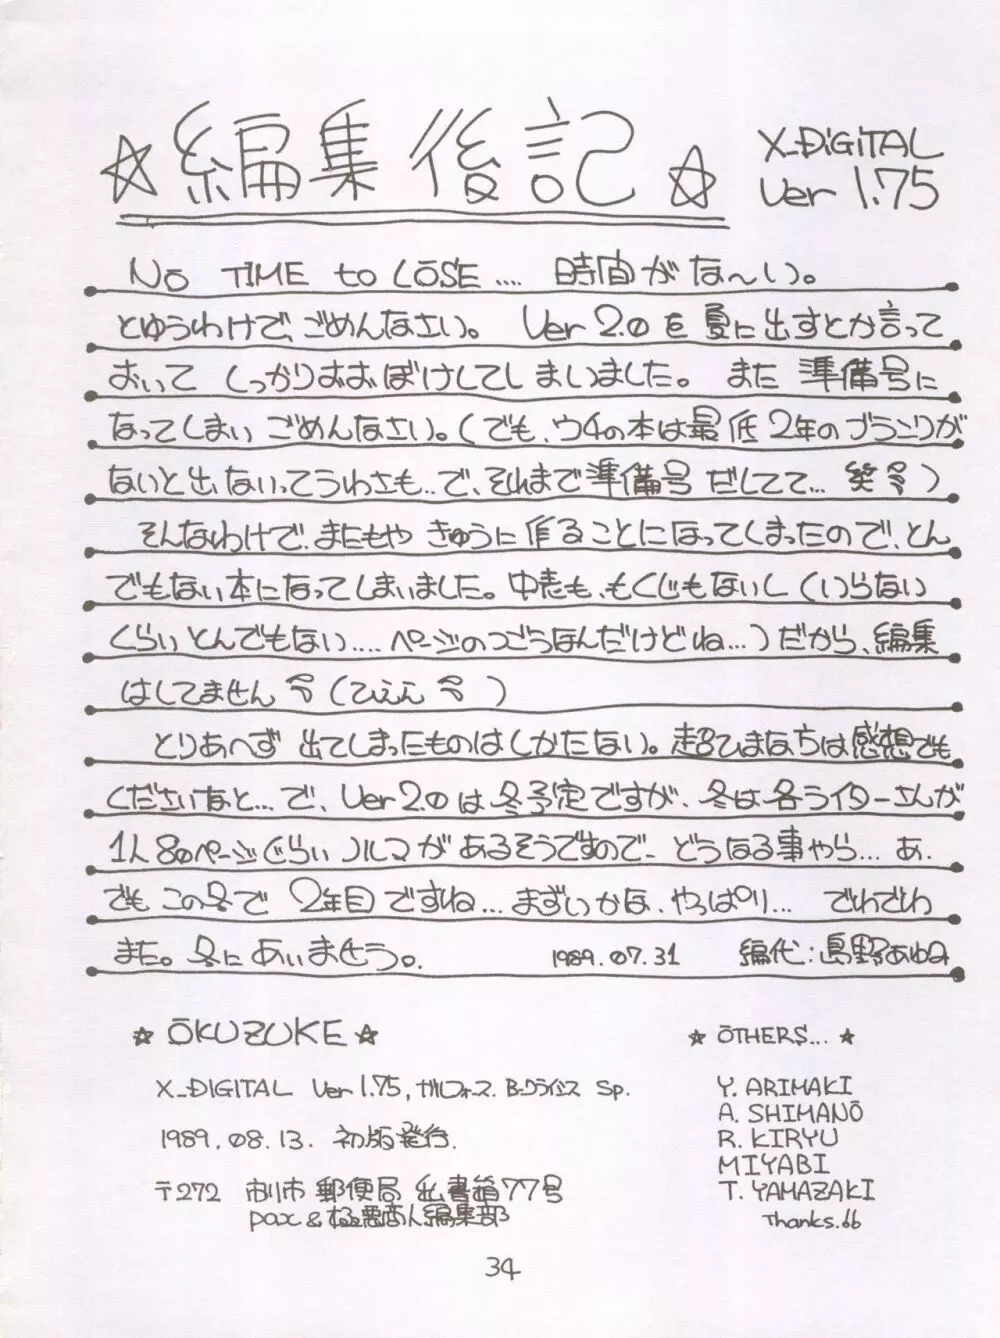 ☆編集後記☆
X_DiGiTAL
Ver 1.75
NO TIME to LOSE.... 時間がな〜い。
とゆうわけで、ごめんなさい。 Ver 2.0を夏に出すとか言って
おいて しっかりおおぼけしてしまいました。 また 準備号に
なってしまい ごめんなさい。(でも、ウチの本は最低2年のブランクが
ないと出ないってうわさも..で、それまで準備号だしてて... 笑)
そんなわけで、またもや きゅうに作ることになってしまったので、とん
でもない本になってしまいました。中表も、もくじもないし(いらない
くらい とんでもない.... ページのつごうなんだけどね...)だから、編集
はしてません (ひええ )
とりあへず 出てしまったものはしかたない。超ひまな方は感想でも
くださいなと...で、Ver 2.0は冬予定ですが、冬は各ライターさんが
1人80ページぐらい ノルマが あるそうですので、どうなる事やら... あ、
でも この冬で 2年目ですね... まずいかな、やっぱり... でわでわ
また。冬に あいませう。 1989.07.31 編代:島野あゆみ
☆ OKUZUKE ☆
X_DIGITAL Ver 1.75, ガルフォース. B-クライシス Sp.
1989.08.13. 初版発行.
〒272 市川市 郵便局 私書箱77号
pax & 極悪商人編集部
☆ OTHERS... ☆
Y. ARIMAKI
A. SHIMANO
R. KIRYU
MIYABI
T. YAMAZAKI
Thanks.66
34